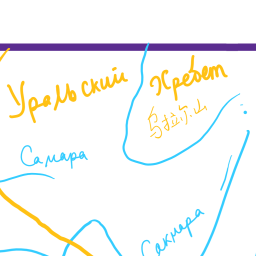 Уральский Хребет
乌拉尔山
Самара
Сакмара